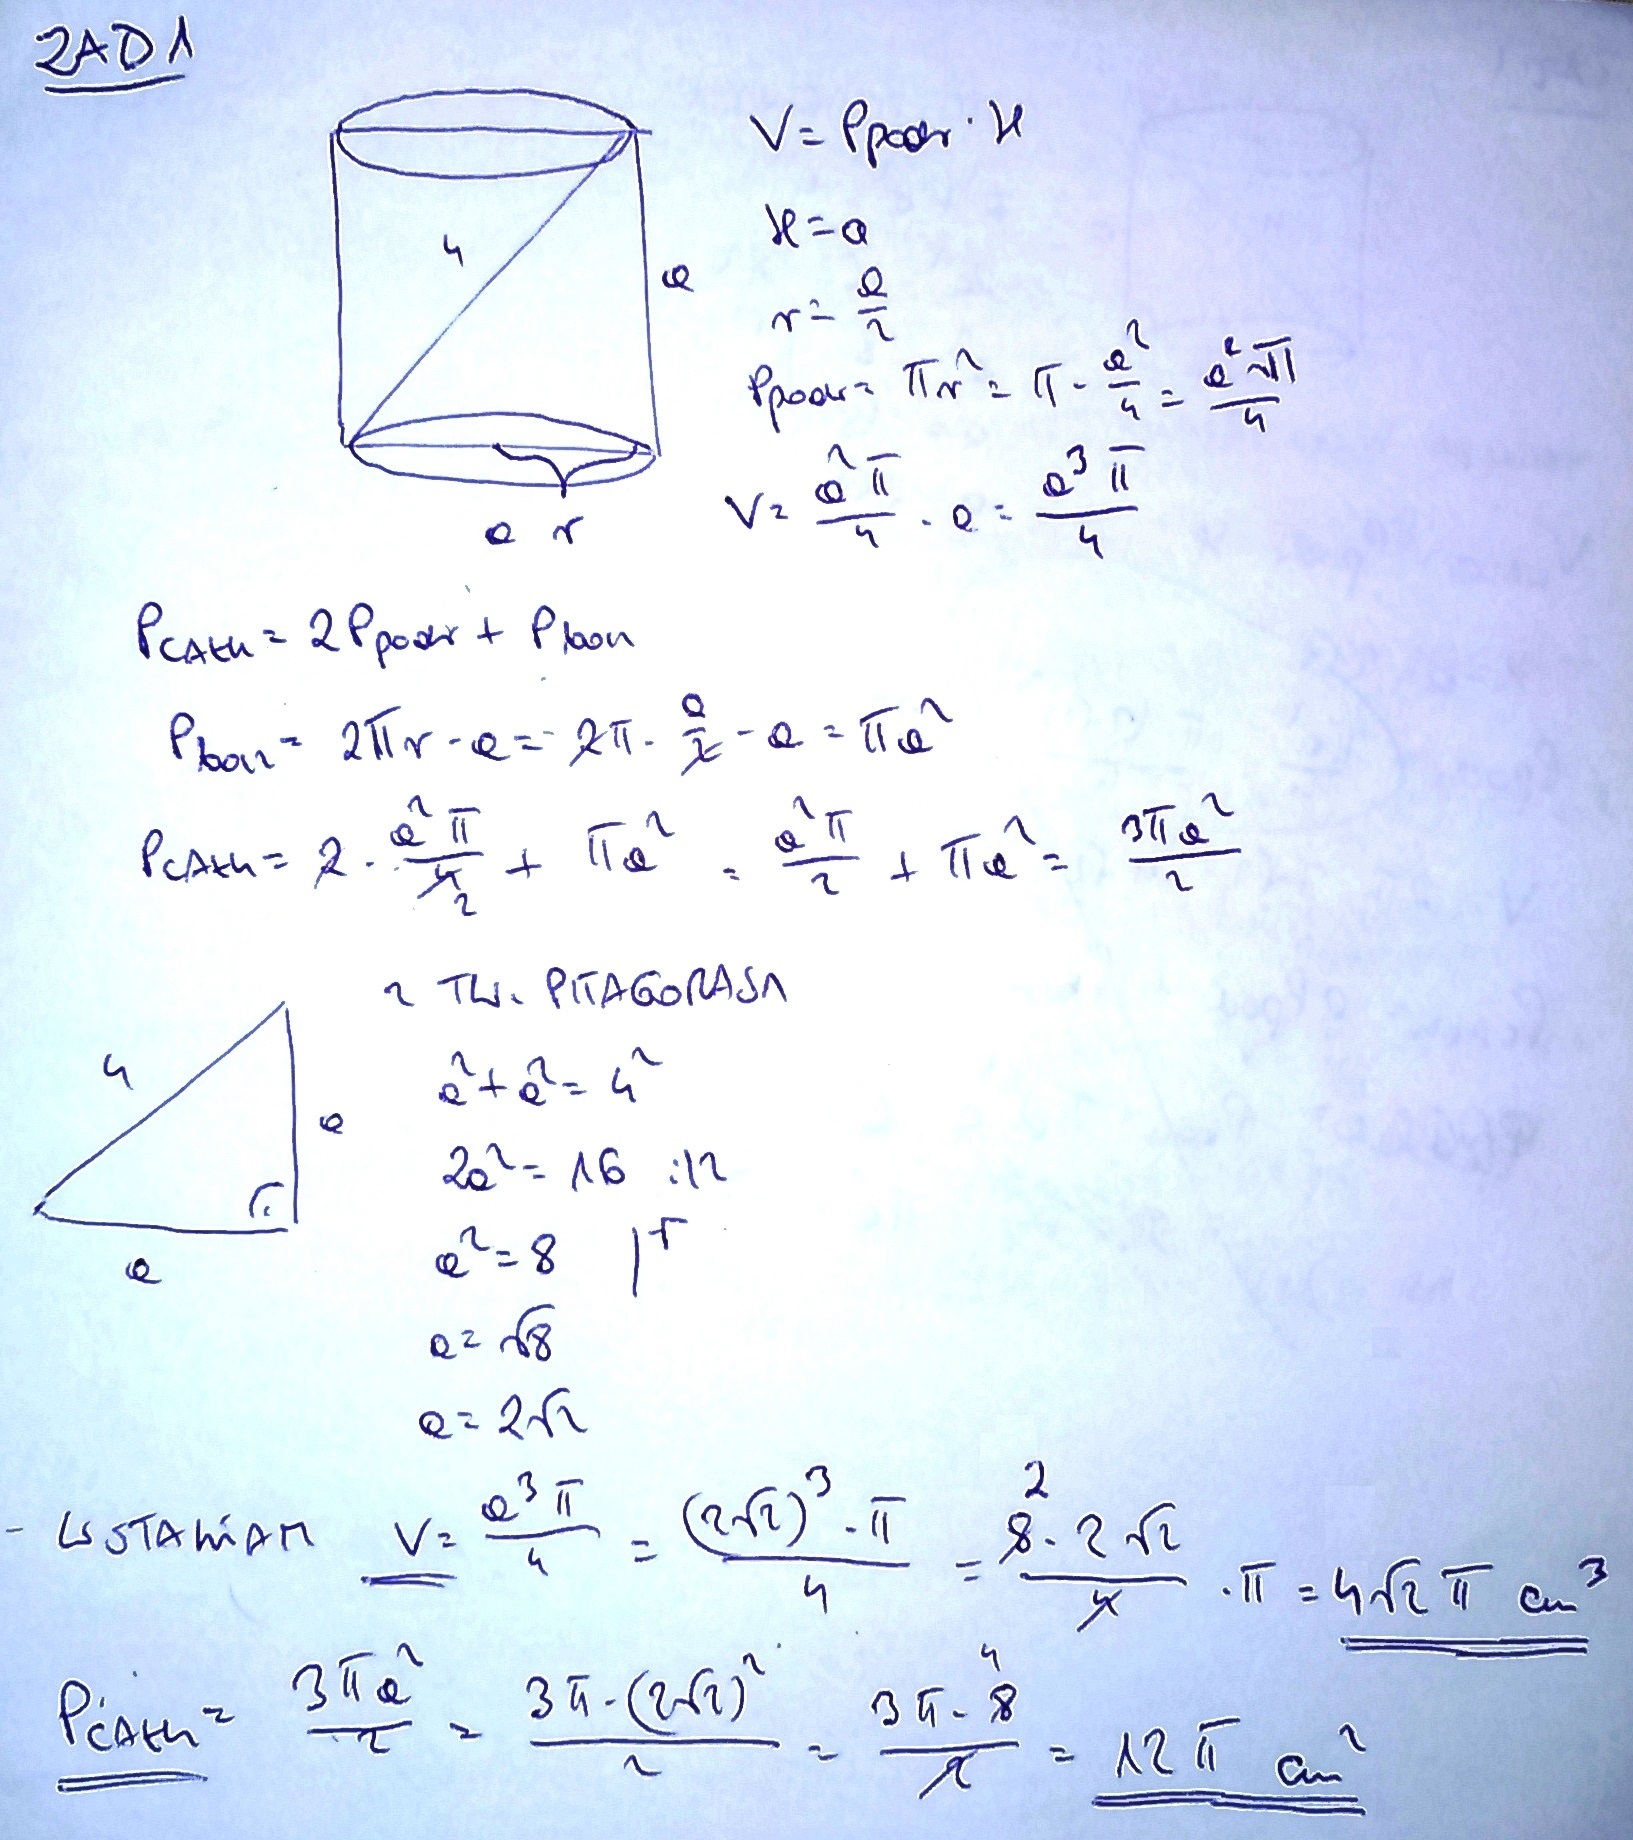 ZAD1
4
a
a r
V = Ppodst · H
H = a
r = a/2
Ppodst = πr² = π · a²/4 = a²π/4
V = a²π/4 · a = a³π/4
PCAŁK = 2Ppodst + Pbocz
Pbocz = 2πr · a = 2π · a/2 · a = πa²
PCAŁK = 2 · a²π/4 2 + πa² = a²π/2 + πa² = 3πa²/2
z TW. PITAGORASA
4
a
a
a² + a² = 4²
2a² = 16 :/2
a² = 8 |√
a = √8
a = 2√2
- WSTAWIAM V = a³π/4 = (2√2)³ · π/4 = 2 8 · 2√2/4 · π = 4√2 π cm³
PCAŁK = 3πa²/2 = 3π · (2√2)²/2 = 3π · 8 4/2 = 12π cm²